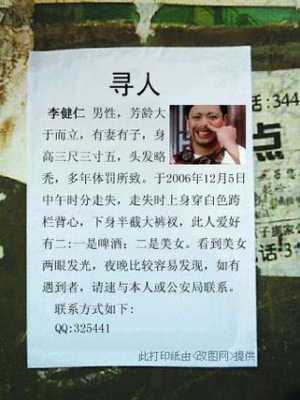 寻人
李健仁 男性，芳龄大
于而立，有妻有子，身
高三尺三寸五，头发略
秃，多年体罚所致。于2006年12月5日
中午时分走失，走失时上身穿白色跨
栏背心，下身半截大裤衩，此人爱好
有二:一是啤酒；二是美女。看到美女
两眼发光，夜晚比较容易发现，如有
遇到者，请速与本人或公安局联系。
联系方式如下:
QQ:325441
此打印纸由<改图网>提供
话:344
点
电话:3